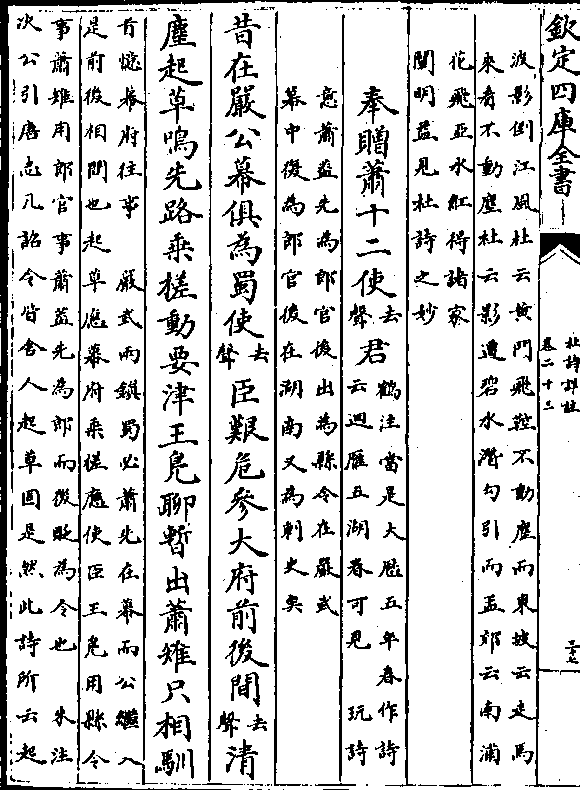 欽定四庫全書
杜詩詳註
卷二十三
二十七
波影倒江風杜云黄門飛鞚不動塵而東坡云走馬
來看不動塵杜云影遭碧水潛勾引而孟郊云南浦
花飛亞水紅得諸家
闡明益見杜詩之妙
奉贈蕭十二使去聲君
鶴注當是大厯五年春作詩
云迴雁五湖春可見 玩詩
意蕭益先為郎官後出為縣令在嚴武
幕中後為郎官後在湖南又為刺史矣
昔在嚴公幕俱為蜀使去聲臣艱危參大府前後間去聲清
塵起草鳴先路乘槎動要津王鳧聊暫出蕭雉只相馴
首憶幕府往事 嚴武兩鎮蜀必蕭先在幕而公繼入
是前後相間也起草應幕府乘槎應使臣王鳧用縣令
事蕭雉用郎官事蕭益先為郎而後貶為令也 朱注
次公引唐志凡詔令皆舍人起草固是然此詩所云起